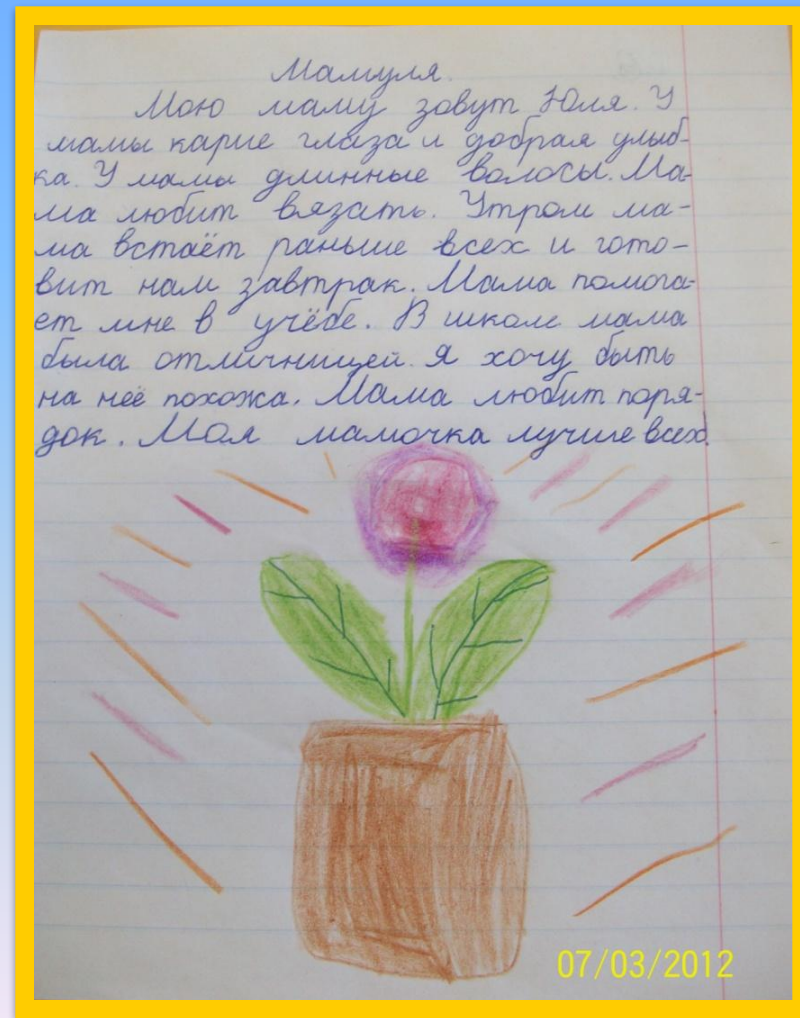 Мамуля.
Мою маму зовут Юля. У
мамы карие глаза и добрая улыб-
ка. У мамы длинные волосы. Ма-
ма любит вязать. Утром ма-
ма встаёт раньше всех и гото-
вит нам завтрак. Мама помога-
ет мне в учёбе. В школе мама
была отличницей. Я хочу быть
на неё похожа. Мама любит поря-
док. Моя мамочка лучше всех!
07/03/2012